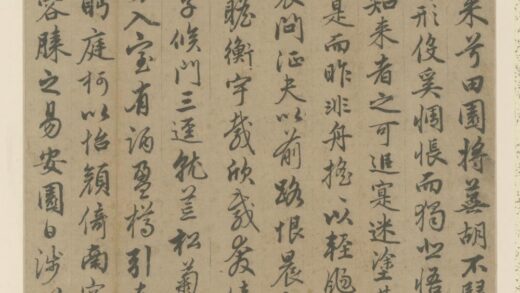 来兮田園將蕪胡不歸
形役奚惆悵而獨悲悟
知来者之可追寔迷塗其
是而昨非舟搖〻以輕颺
衣問征夫以前路恨晨
瞻衡宇載欣載奔僮
子候門三逕就荒松菊
入室有酒盈樽引
眄庭柯以怡顔倚南窗
容膝之易安園日涉